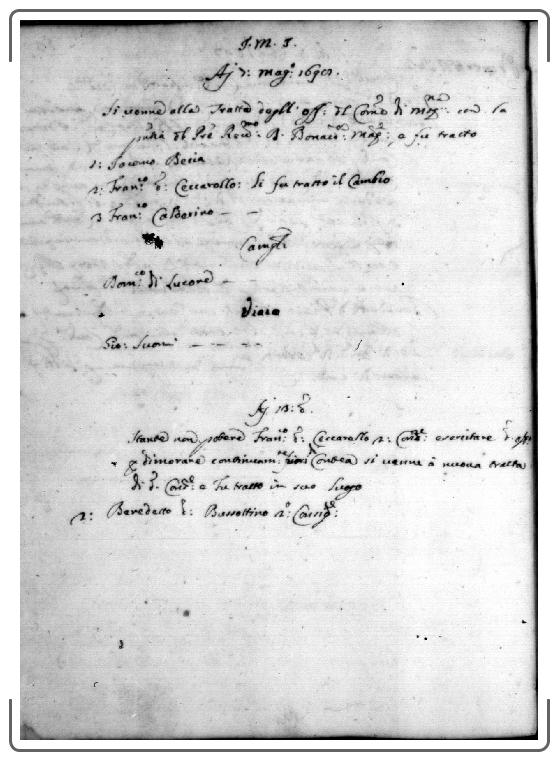 J. M. J.
Aj 7: mag.o 1690.
Si venne alla Tratta degl' off: del Com.e di : con la
del : Bonacc: Mag: e fu tratto
1: Beria
2: Fran.co q: Ceccarello: Si fu tratto il Cambio
3 Fran.co Calderino — —
Camp.li
Dom.co di Lucone —
Viaio
Gio: — — — —
Aj 13: d.
Stante non potere Fran.co q: Ceccarello 2: Cons: esercitare
p dimorare continuam.te fuori Contea si venne à nuova tratta
di d: Cons e fu tratto in suo luogo
2: Benedetto q: Bassottino 2.o Consig: